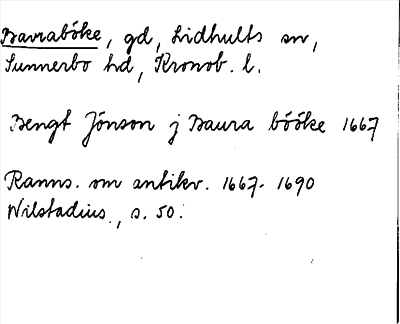 Bavraböke, gd, Lidhults sn,
Sunnerbo hd, Kronob. l.
Bengt Jönson j Baura bööke 1667
Ranns. om antikv. 1667-1690
Wilstadius, s. 50.